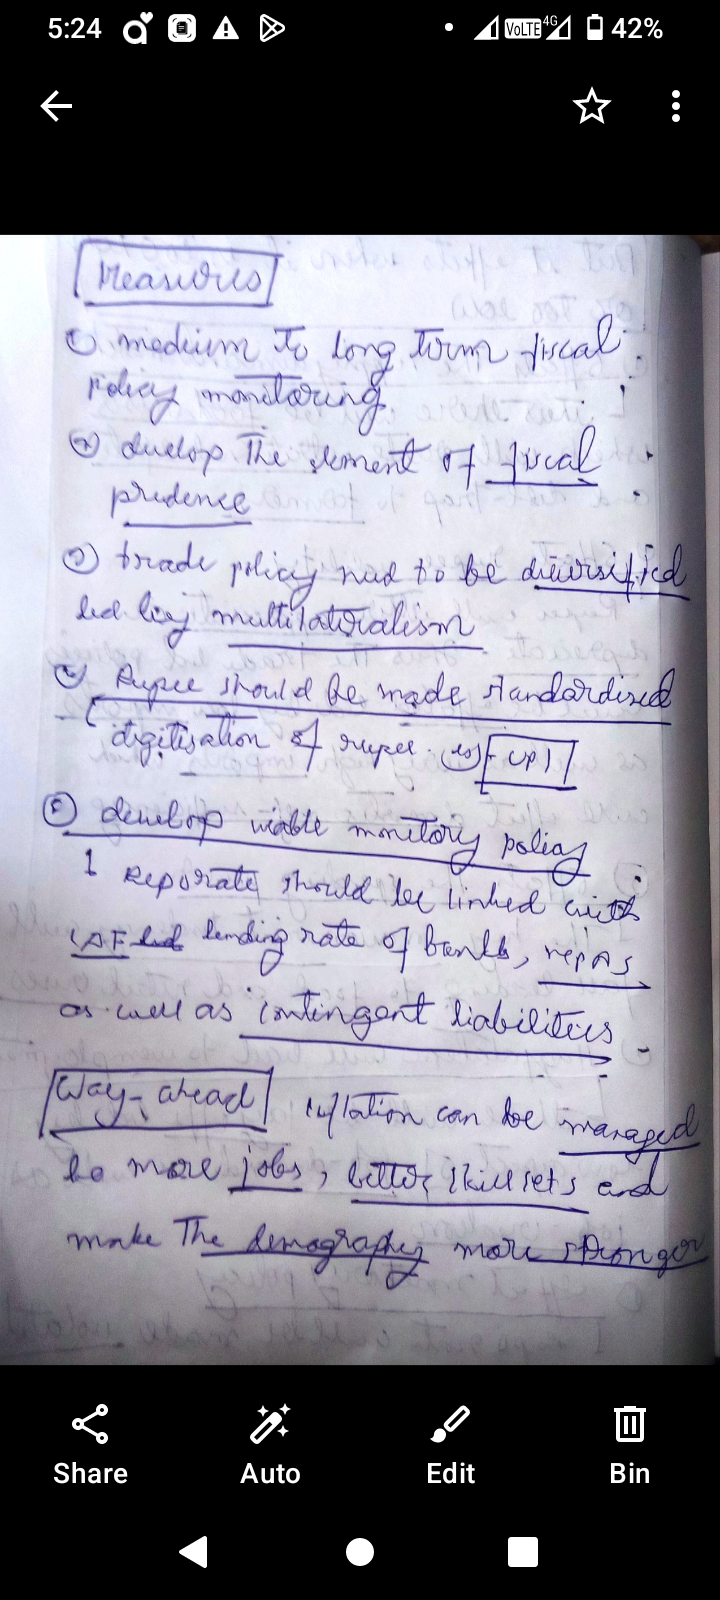 5:24
VoLTE 4G 42%
Measures
① medium to long term fiscal
policy monitoring
② develop the element of fiscal
prudence
③ trade policy need to be diversified
led by multilateralism
④ Rupee should be made standardised
digitisation of rupee. eg UPI
⑤ develop viable monitory policy
1 Reporate should be linked with
LAF lending rate of banks, repos
as well as contingent liabilities
Way-ahead inflation can be managed
be more jobs, better skill sets and
make the demography more stronger
Share Auto Edit Bin